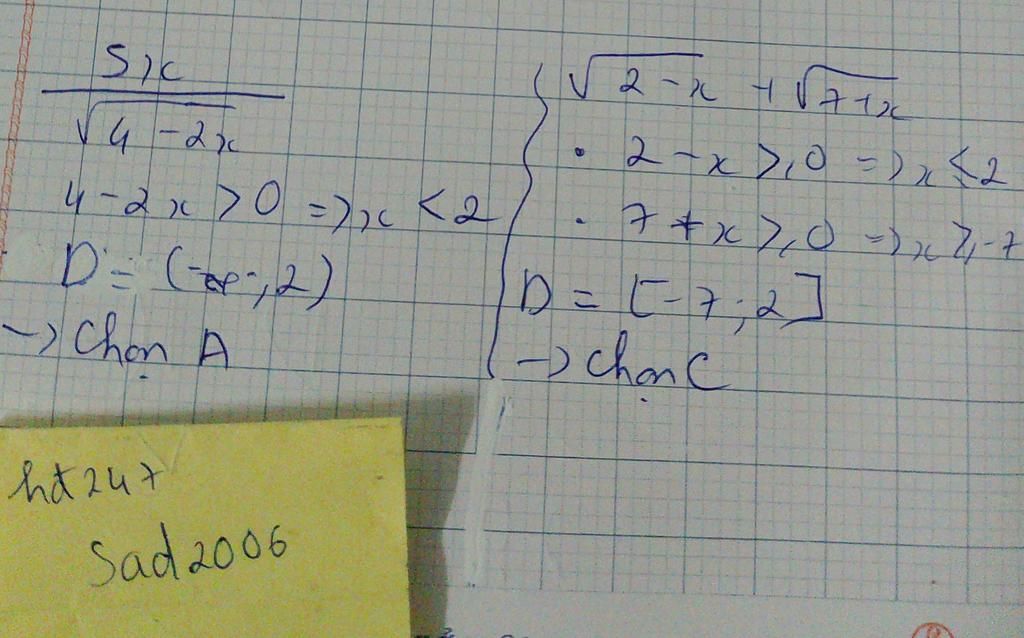 5x
√4 - 2x
4 - 2x > 0 => x < 2
D = (-∞; 2)
-> Chọn A
√2 - x + √7 + x
• 2 - x ≥ 0 => x ≤ 2
• 7 + x ≥ 0 => x ≥ -7
D = [-7; 2]
-> Chọn C
hd247
Sad2006